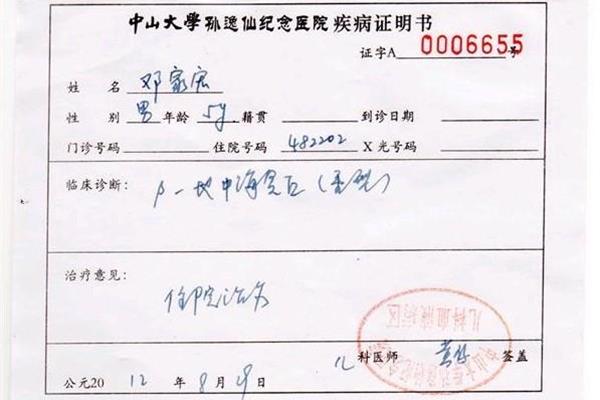 中山大学孙逸仙纪念医院疾病证明书
证字A 0006655号
姓名 邓家宏
性别 男 年龄 5y 籍贯 到诊日期
门诊号码 住院号码 482202 X光号码
临床诊断: β-地中海贫血(重型)
治疗意见:
住院治疗
儿科医师 签盖
儿科血液病区
公元2012年8月29日